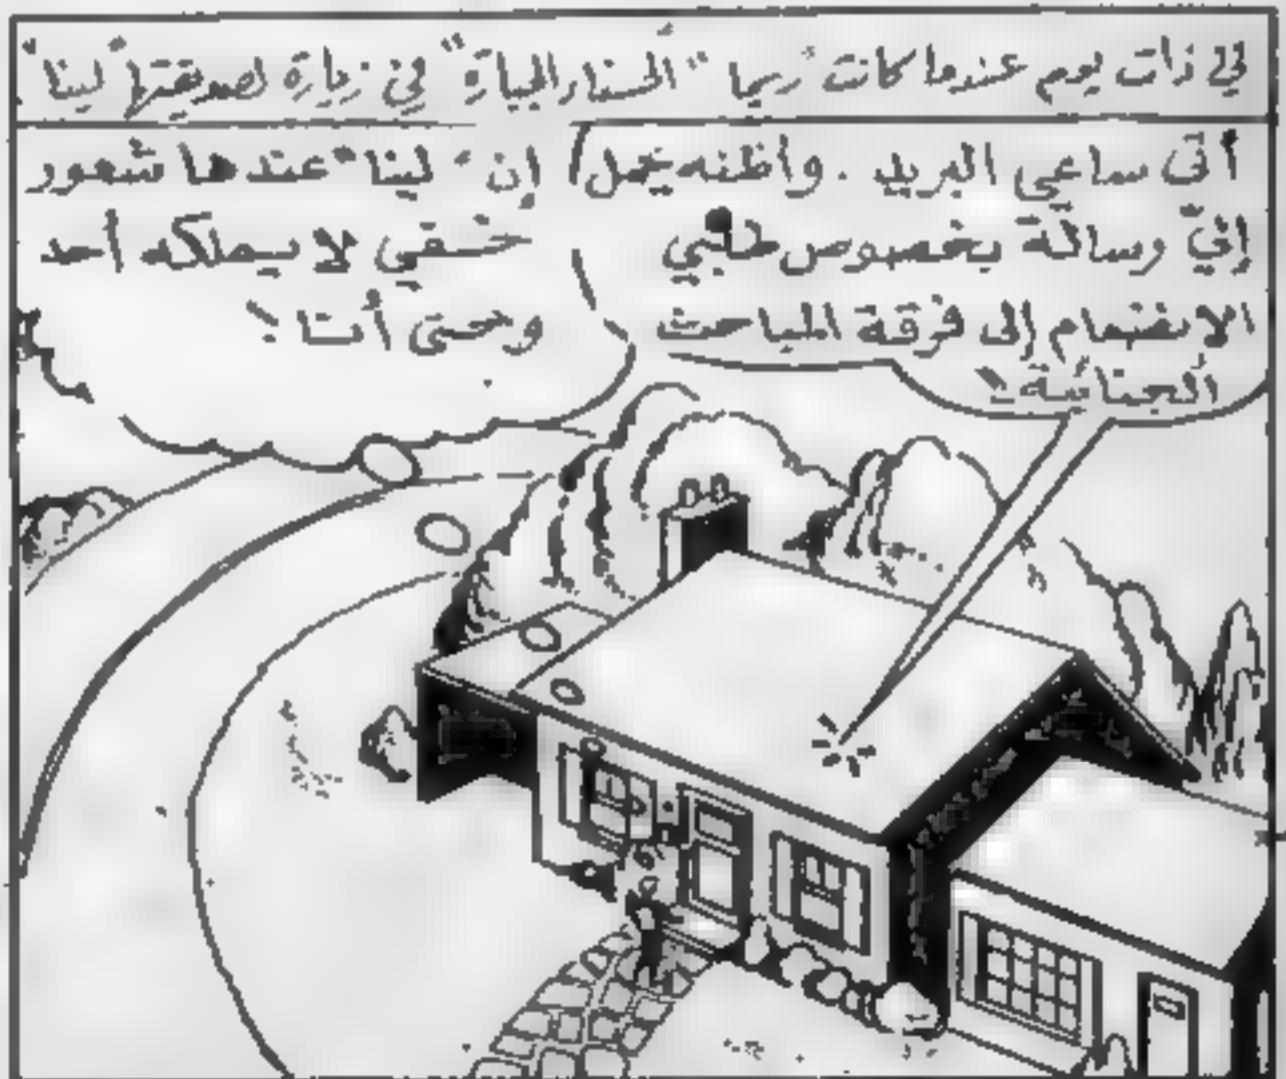 في ذات يوم عندما كانت "ريما" "ألحسناء الجبارة" في زيارة لصديقتها "لينا"
أتى ساعي البريد . وأظنه يحمل
إليّ رسالة بخصوص طلبي
الانضمام إلى فرقة المباحث
ألجنائية !
إن "لينا" عندها شعور
خفي لا يملكه أحد
وحتى أنا !